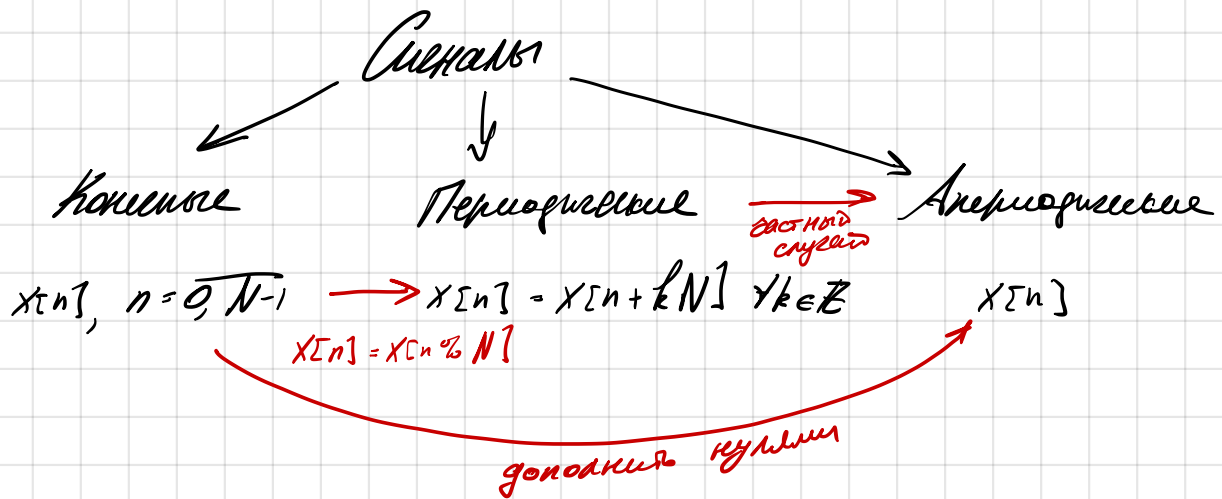 Сигналы
Конечные Периодические частный случай Апериодические
x[n], n = 0, N-1 x[n] = x[n + kN] ∀k ∈ ℤ x[n]
x[n] = x[n % N]
дополнить нулями